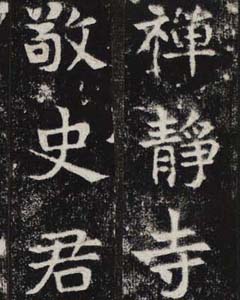 禪靜寺
敬史君